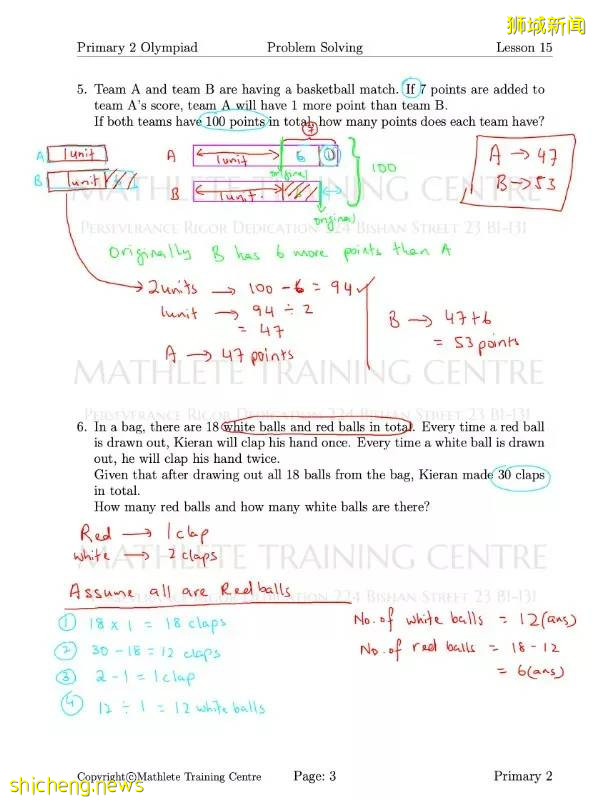 狮城新闻
Primary 2 Olympiad Problem Solving Lesson 15
5. Team A and team B are having a basketball match. If 7 points are added to
team A's score, team A will have 1 more point than team B.
If both teams have 100 points in total, how many points does each team have?
7
A 1 unit
A 1 unit 6 1
original
100
A → 47
B 1 unit
B 1 unit
B → 53
original
MATHLETE TRAINING CENTRE
PERSEVERANCE RIGOR DEDICATION 224 BISHAN STREET 23 B1-131
Originally B has 6 more points than A
2 units → 100 - 6 = 94 ✓
1 unit → 94 ÷ 2
= 47
A → 47 points
B → 47 + 6
= 53 points
MATHLETE TRAINING CENTRE
PERSEVERANCE RIGOR DEDICATION 224 BISHAN STREET 23 B1-131
6. In a bag, there are 18 white balls and red balls in total. Every time a red ball
is drawn out, Kieran will clap his hand once. Every time a white ball is drawn
out, he will clap his hand twice.
Given that after drawing out all 18 balls from the bag, Kieran made 30 claps
in total.
How many red balls and how many white balls are there?
Red → 1 clap
white → 2 claps
MATHLETE TRAINING CENTRE
PERSEVERANCE RIGOR DEDICATION 224 BISHAN STREET 23 B1-131
Assume all are Red balls
① 18 x 1 = 18 claps
② 30 - 18 = 12 claps
③ 2 - 1 = 1 clap
④ 12 ÷ 1 = 12 white balls
No. of white balls = 12 (ans)
No. of red balls = 18 - 12
= 6 (ans)
Copyright©Mathlete Training Centre Page: 3 Primary 2
shicheng.news